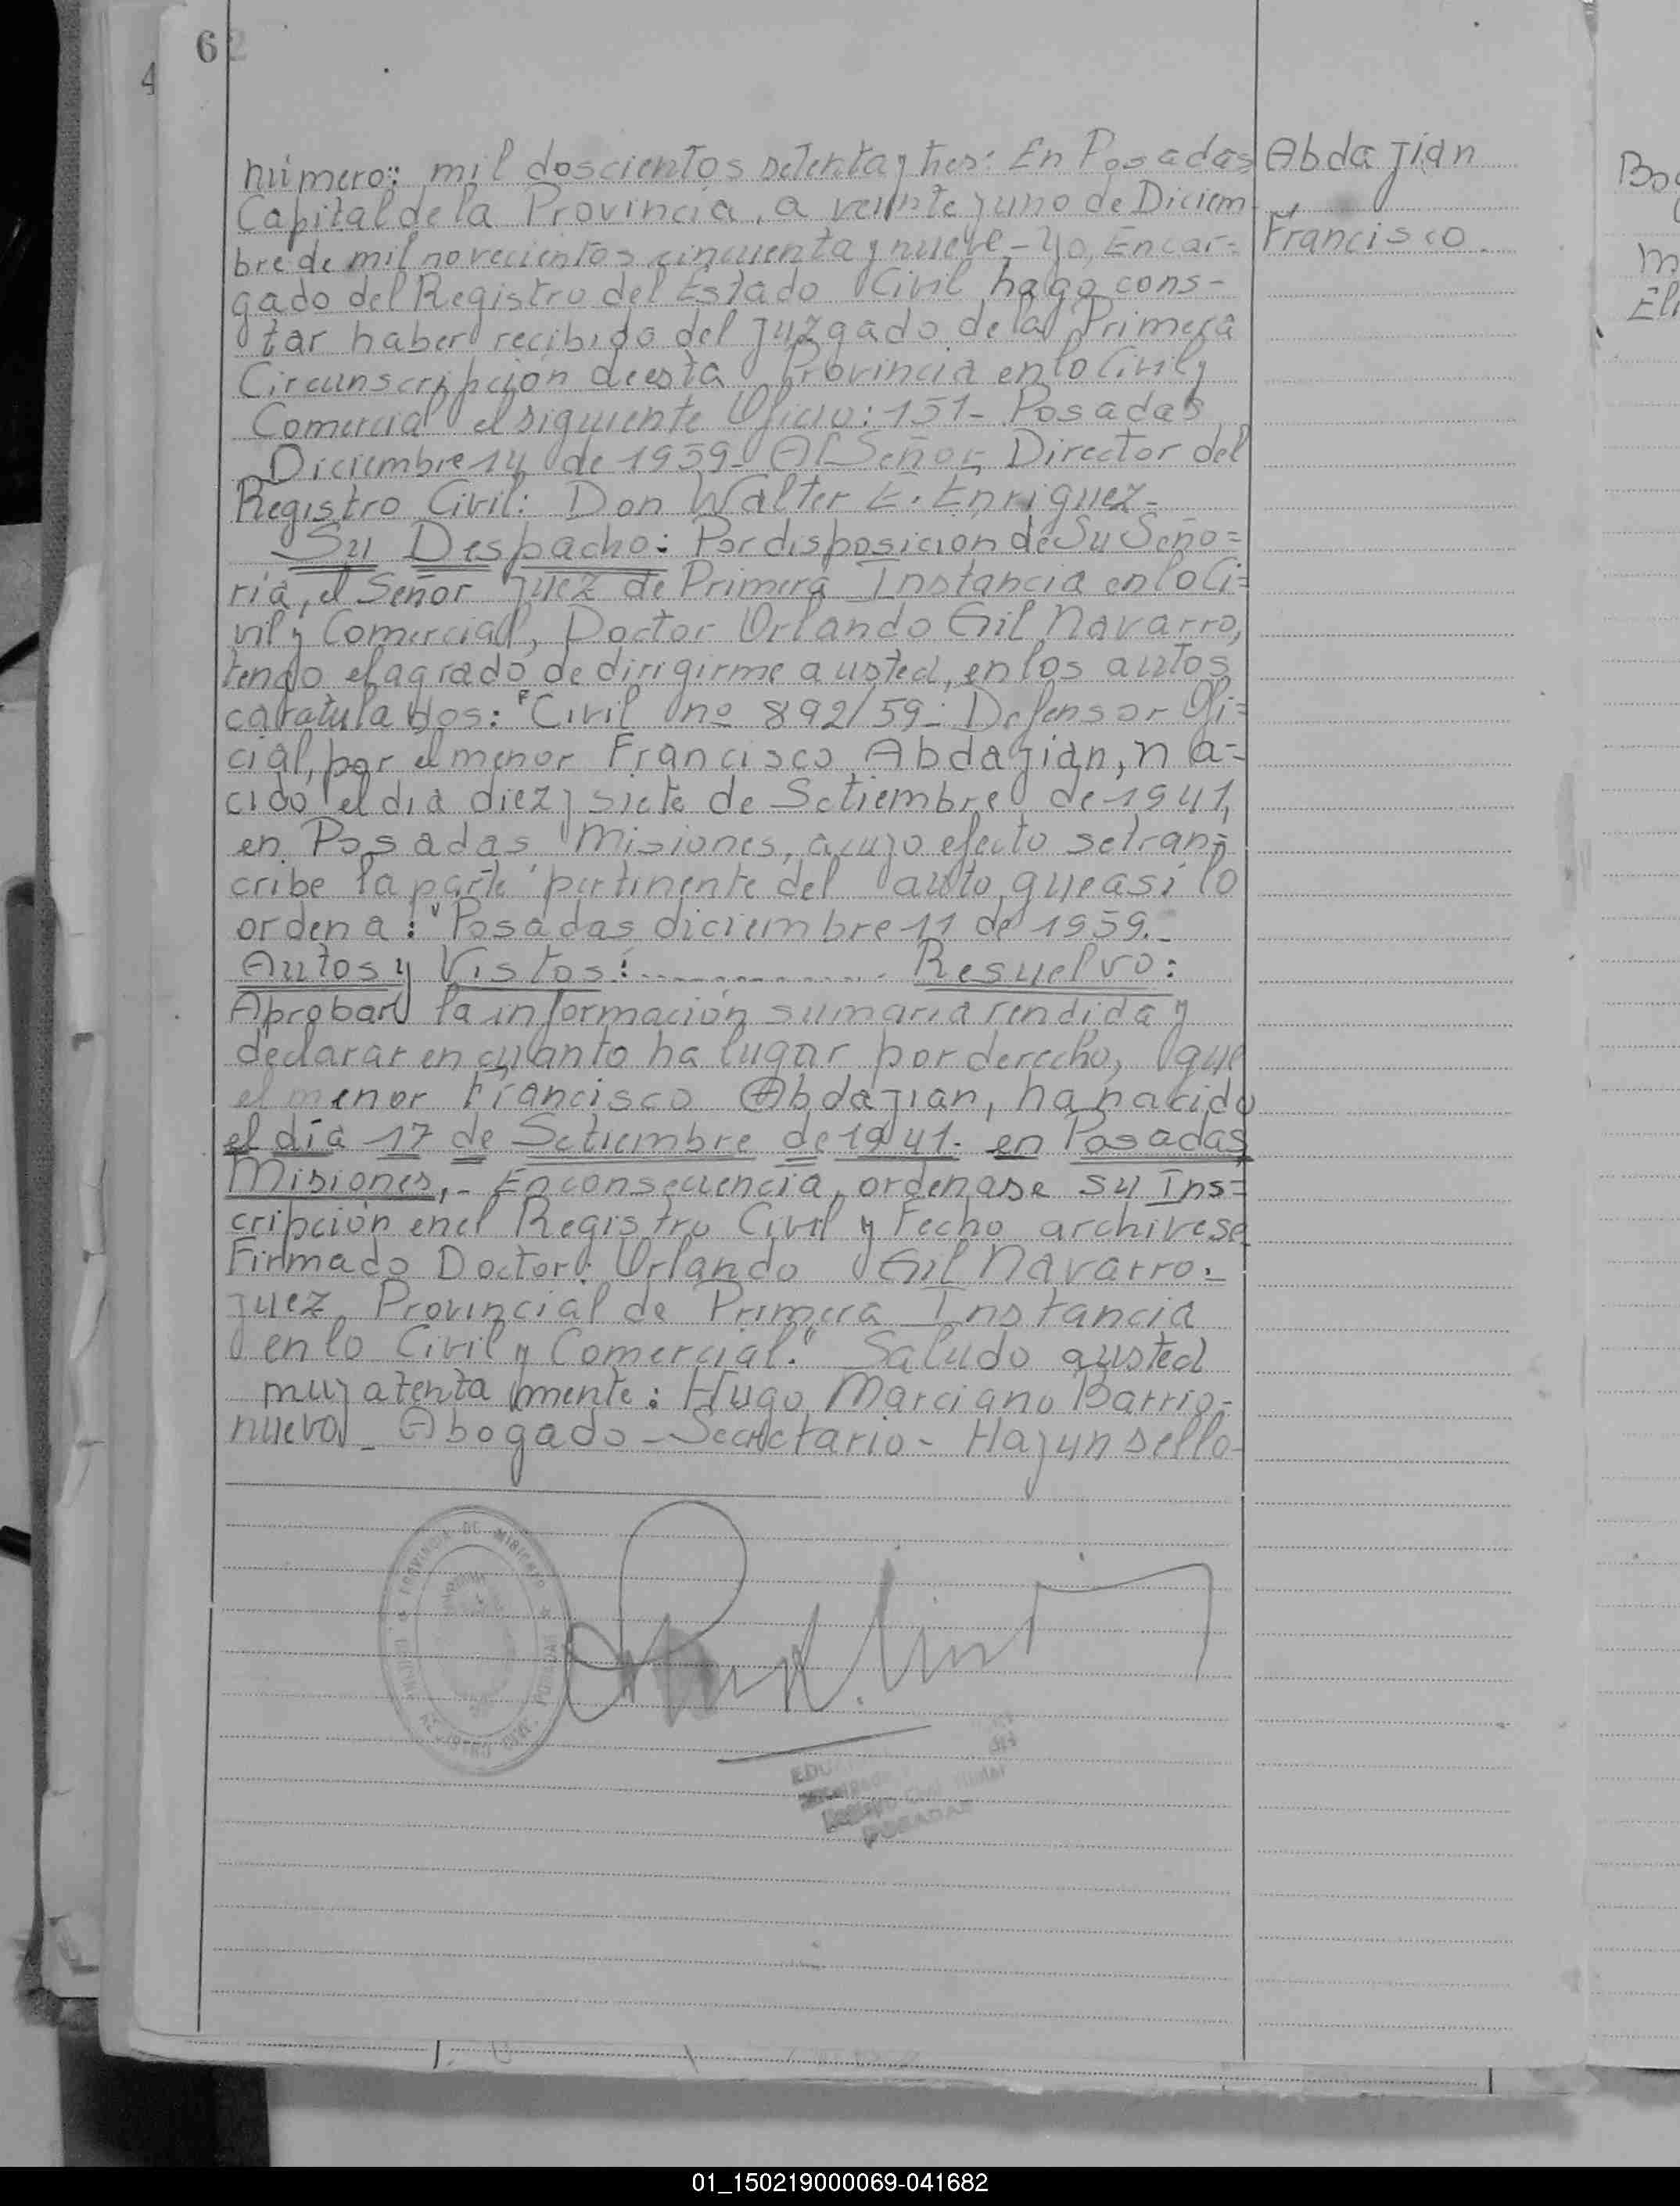 62
4
número: mil doscientos setenta y tres: En Posadas
Capital de la Provincia, a veinte y uno de Diciem
bre de mil novecientos cincuenta y nueve - Yo, Encar=
gado del Registro del Estado Civil hago cons-
tar haber recibido del Juzgado de la Primera
Circunscripción de esta Provincia en lo Civil y
Comercial el siguiente Oficio: 151- Posadas
Diciembre 14 de 1959- Al Señor Director del
Registro Civil: Don Walter E. Enriquez-
Su Despacho: Por disposicion de Su Seño=
ria, el Señor Juez de Primera Instancia en lo Ci=
vil y Comercial, Doctor Orlando Gil Navarro,
tengo el agrado de dirigirme a usted, en los autos
caratulados: "Civil no 892/59- Defensor Ofi=
cial, por el menor Francisco Abdajian, na=
cido el dia diez y siete de Setiembre de 1941,
en Posadas Misiones, a cuyo efecto se trans=
cribe la parte pertinente del auto que asi lo
ordena: "Posadas diciembre 11 de 1959.-
Autos y Vistos:.............. Resuelvo:
Aprobar la información sumaria rendida y
declarar en cuanto ha lugar por derecho, que
el menor Francisco Abdajian, ha nacido
el día 17 de Setiembre de 1941. en Posadas
Misiones,- En consecuencia, ordenase su Ins=
cripción en el Registro Civil y Fecho archivese
Firmado Doctor: Orlando Gil Navarro.-
Juez Provincial de Primera Instancia
en lo Civil y Comercial." Saludo a usted
muy atentamente: Hugo Marciano Barrio-
nuevo - Abogado - Secretario - Hay un sello-
Abdajian
Francisco.
PROVINCIA DE MISIONES
POSADAS
01_150219000069-041682